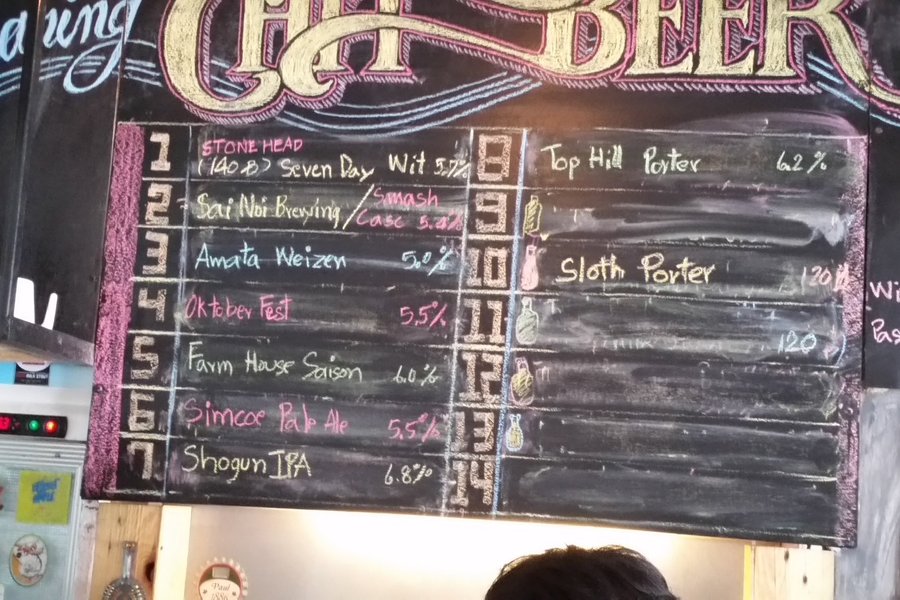 CHIT BEER
1 STONE HEAD
(140 B) Seven Day Wit 5.7%
2 Sai Noi Brewing / Smash
Casc 5.4%
3 Amata Weizen 5.0%
4 Oktober Fest 5.5%
5 Farm House Saison 6.0%
6 Simcoe Pale Ale 5.5%
7 Shogun IPA 6.8%
8 Top Hill Porter 6.2%
9
10 Sloth Porter 120
11 120
12
13
14
Paul